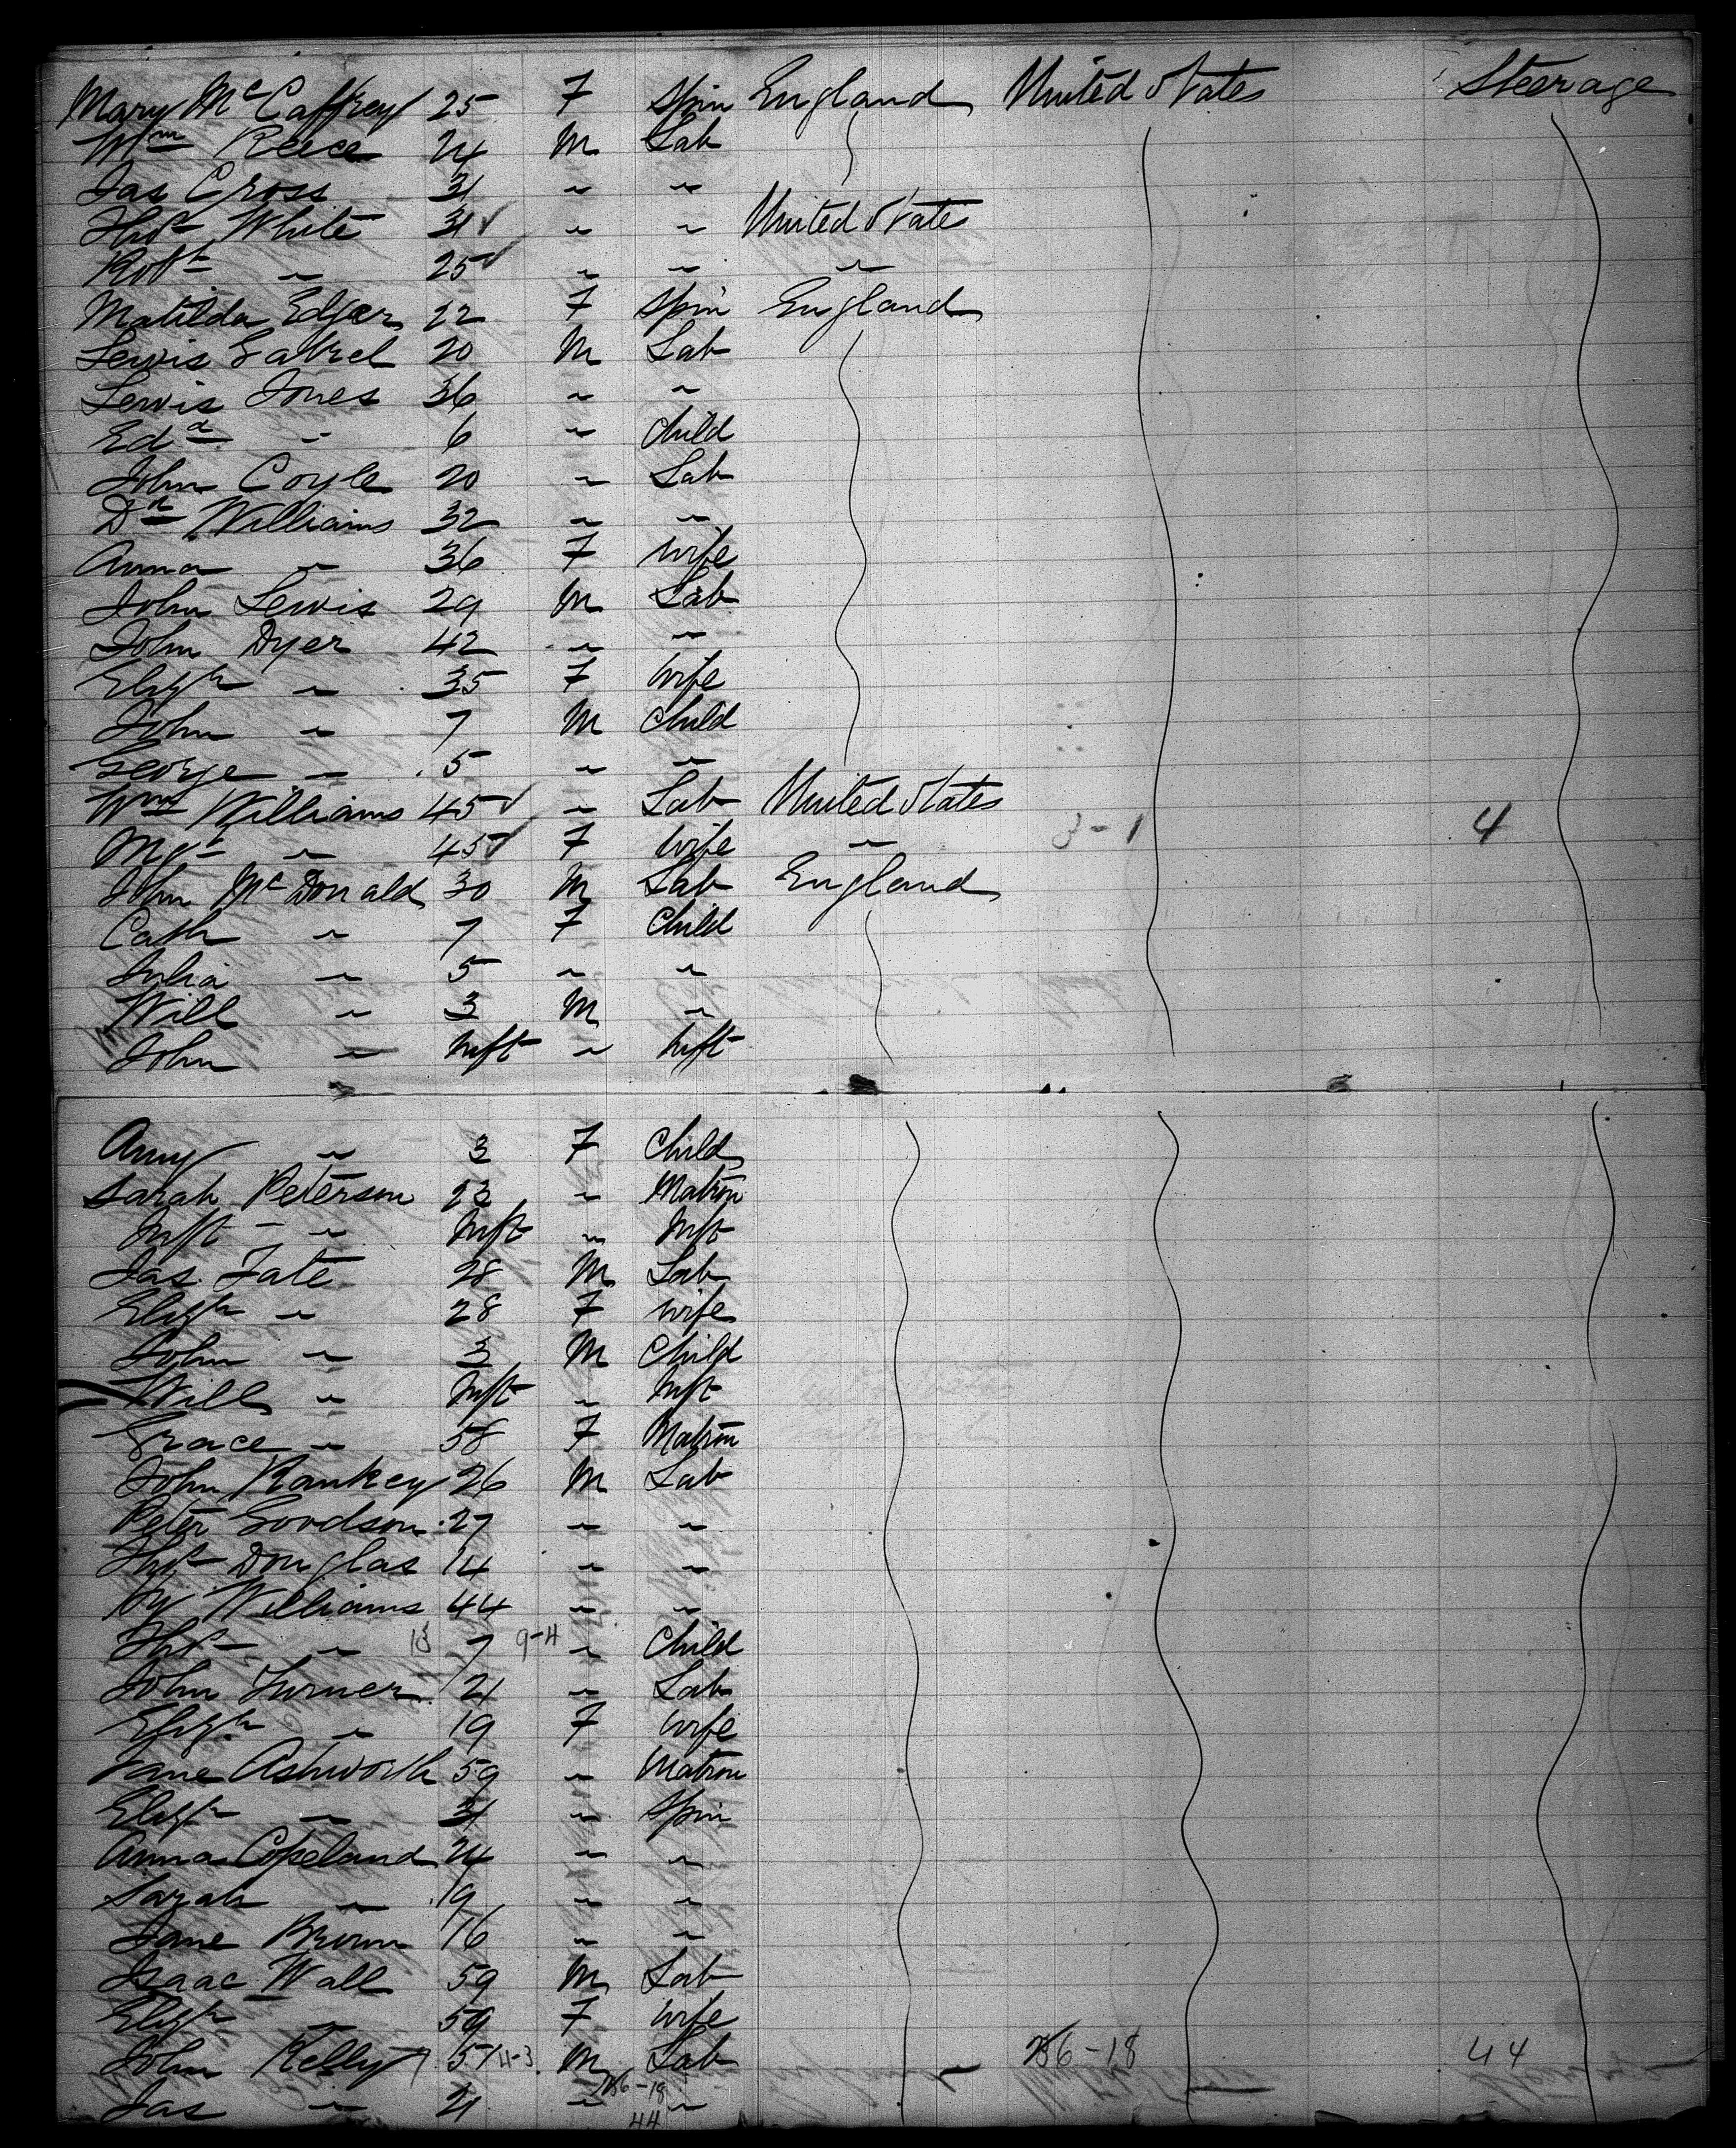 Mary McCaffrey 25 F Spin England United States Steerage
Wm Reece 24 M Lab
Jas Cross 31 " "
Thos White 31 ✓ " " United States
Robt " 25 ✓ " " "
Matilda Edgar 22 F Spin England
Lewis Gabrel 20 M Lab
Lewis Jones 36 " "
Edd " 6 " Child
John Coyle 20 " Lab
Dd Williams 32 " "
Anna " 36 F Wife
John Lewis 29 M Lab
John Dyer 42 " "
Elizth " 35 F Wife
John " 7 M Child
George " 5 " "
Wm Williams 45 ✓ " Lab United States
Mgt " 45 ✓ F Wife " 3-1 4
John McDonald 30 M Lab England
Cath " 7 F Child
Julia " 5 " "
Will " 3 M "
John " Inft " Inft
Amy " 3 F Child
Sarah Peterson 23 " Matron
Inft " Inft " Inft
Jas Tate 28 M Lab
Elizth " 28 F Wife
John " 3 M Child
Will " Inft " Inft
Grace " 58 F Matron
John Rankey 26 M Lab
Peter Goodson 27 " "
Thos Douglas 14 " "
Hy Williams 44 " "
Thos " 13 7 9-4 " Child
John Turner 21 " Lab
Elizth " 19 F Wife
Jane Ashworth 59 " Matron
Elizth " 31 " Spin
Anna Copeland 24 " "
Sarah " 19 " "
Jane Brown 16 " "
Isaac Wall 59 M Lab
Elizth " 59 F Wife
John Kelly 51 4-3 M Lab 26-18 44
Jas " 21 " 26-18 "
44